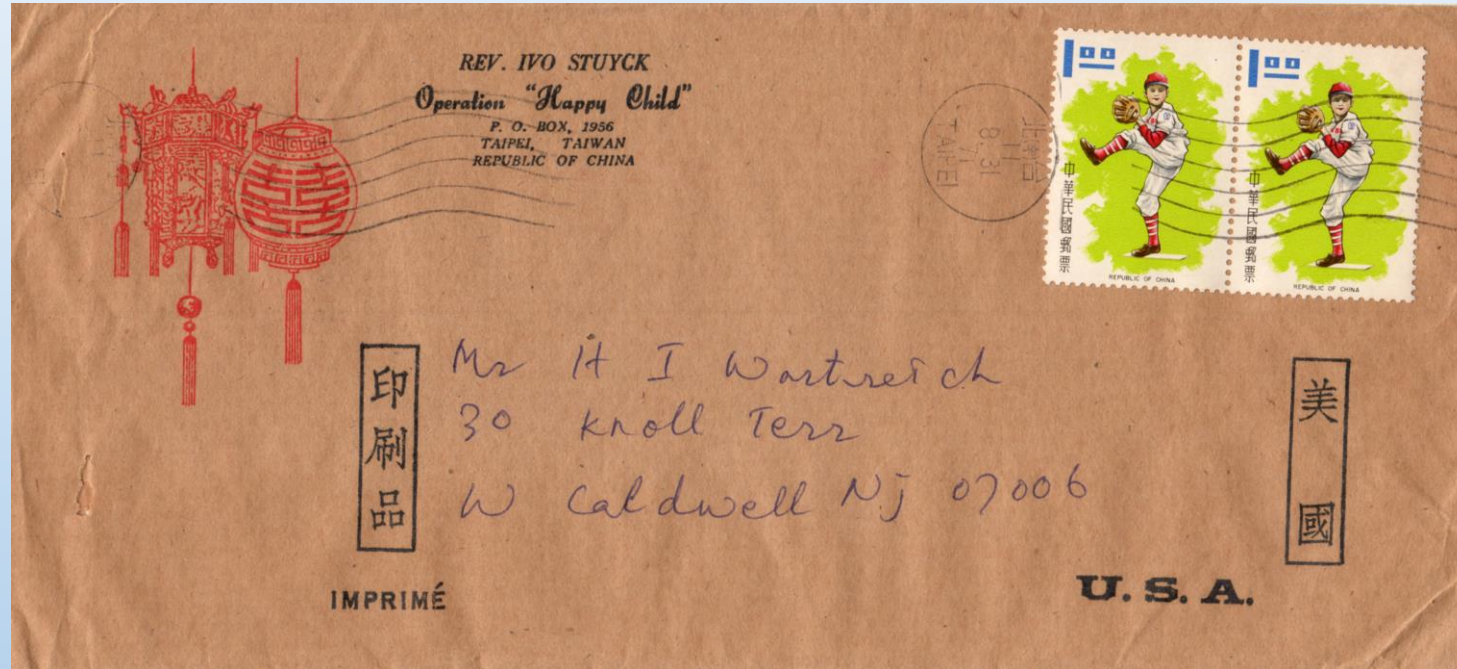 REV. IVO STUYCK
Operation "Happy Child"
P. O. BOX, 1956
TAIPEI, TAIWAN
REPUBLIC OF CHINA
TAIPEI
1.00
中華民國郵票
REPUBLIC OF CHINA
1.00
中華民國郵票
REPUBLIC OF CHINA
印刷品
Mr H I Wartreich
30 Knoll Terr
W Caldwell Nj 07006
美國
IMPRIMÉ
U. S. A.